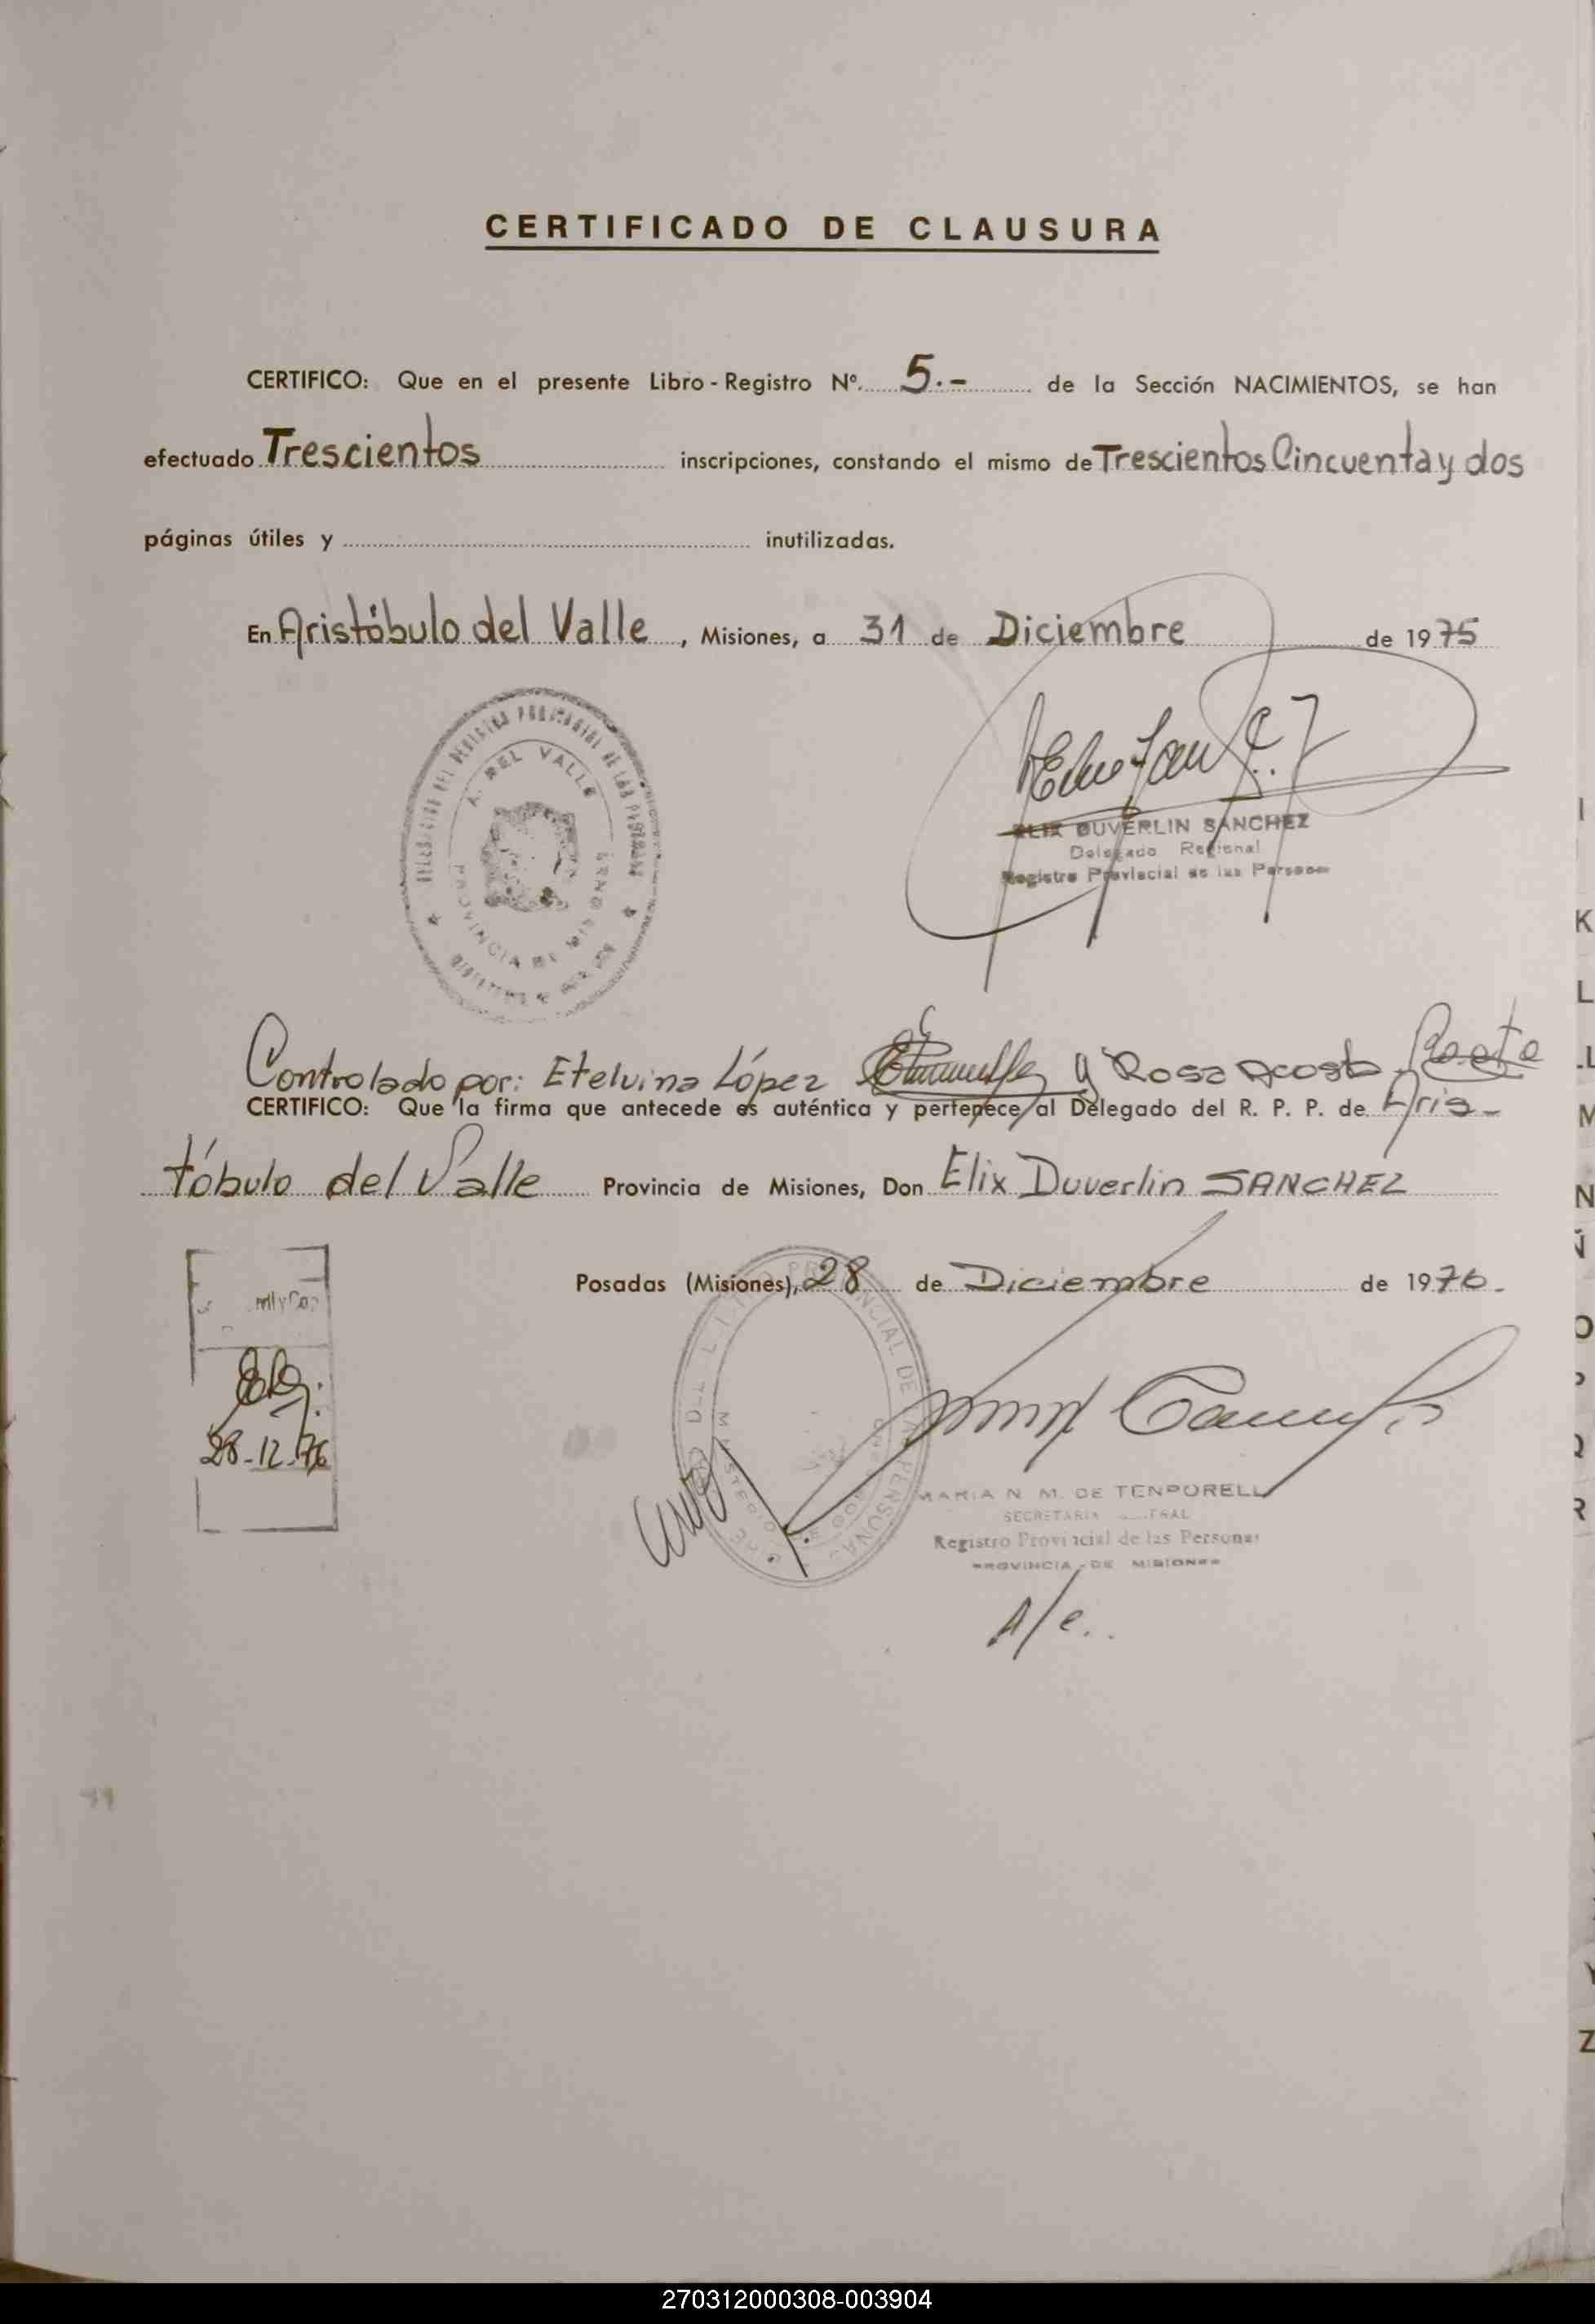 CERTIFICADO DE CLAUSURA
CERTIFICO: Que en el presente Libro - Registro Nº. 5.- de la Sección NACIMIENTOS, se han
efectuado Trescientos inscripciones, constando el mismo de Trescientos Cincuenta y dos
páginas útiles y inutilizadas.
En Aristóbulo del Valle, Misiones, a 31 de Diciembre de 1975
A. DEL VALLE
PROVINCIA DE MISIONES
ELIX DUVERLIN SANCHEZ
Delegado Regional
Registro Provincial de las Personas
Controlado por: Etelvina López y Rosa Acosta
CERTIFICO: Que la firma que antecede es auténtica y pertenece al Delegado del R. P. P. de Aris-
tóbulo del Valle Provincia de Misiones, Don Elix Duverlin SANCHEZ
Posadas (Misiones), 28 de Diciembre de 1976.
28-12-76
MARIA N. M. DE TENPORELLI
SECRETARIA
Registro Provincial de las Personas
PROVINCIA DE MISIONES
A/c..
I
K
L
LL
M
N
Ñ
O
P
Q
R
Y
Z
270312000308-003904